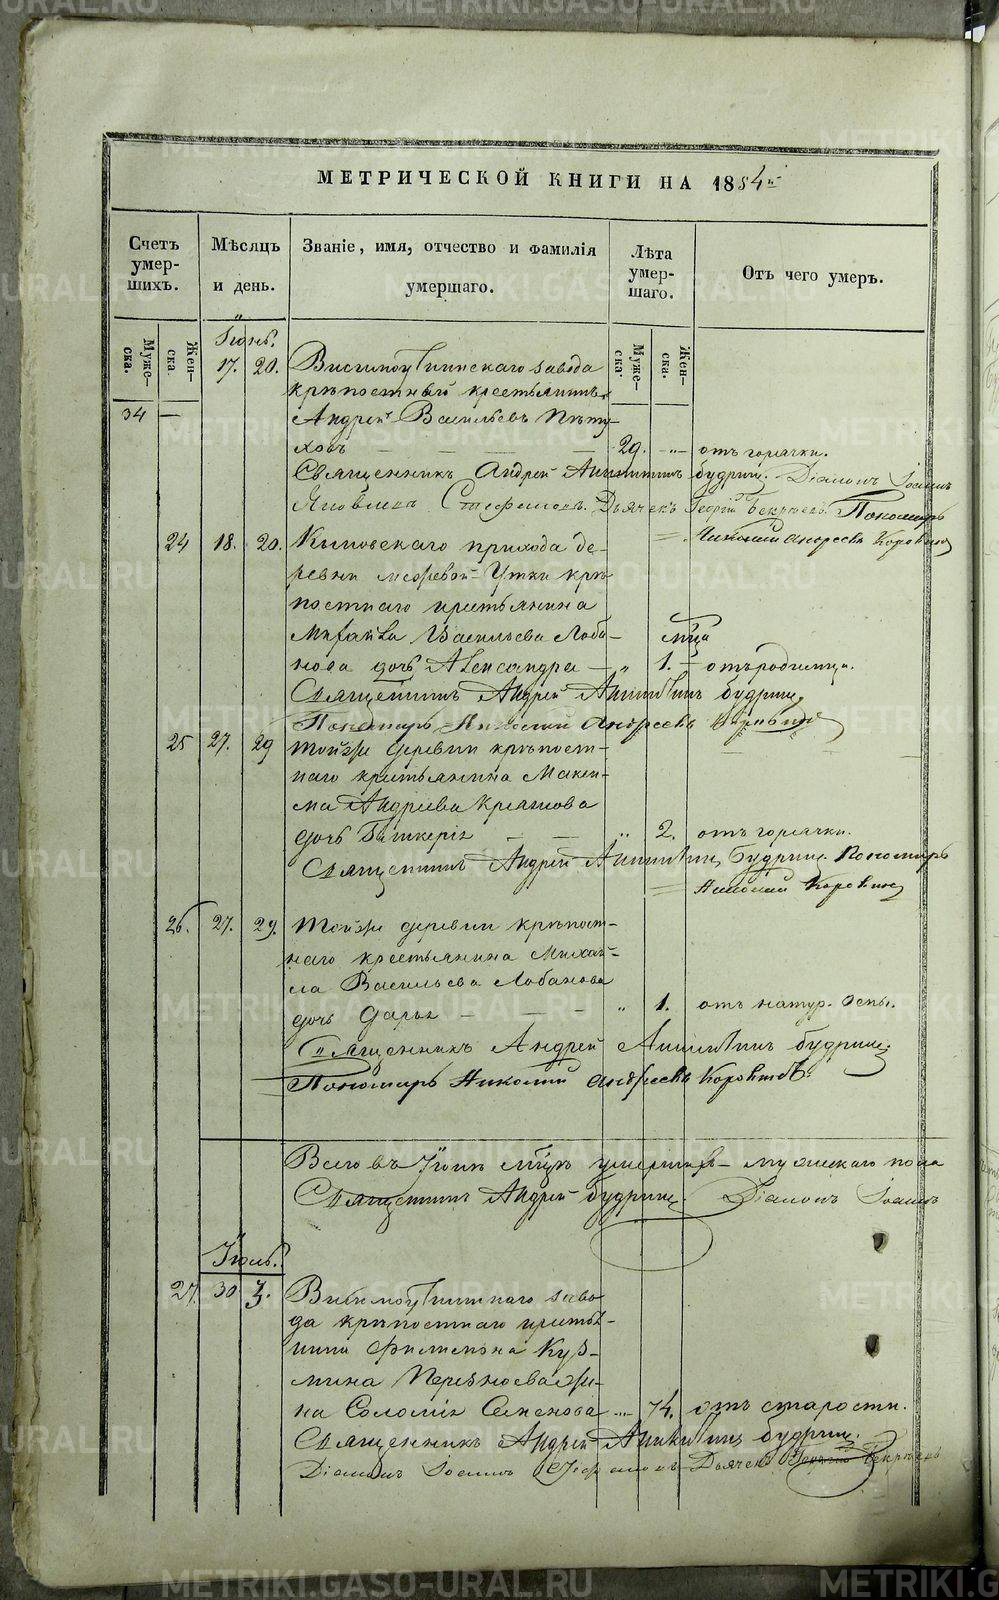 METRIKI.GASO-URAL.RU
МЕТРИЧЕСКОЙ КНИГИ НА 1854й
Счетъ умер- шихъ.
Мѣсяцъ и день.
Званіе, имя, отчество и фамилія умершаго.
Лѣта умер- шаго.
Отъ чего умеръ.
Муже- ска.
Жен- ска.
Муже- ска.
Жен- ска.
Іюнь.
17. 20. Висимоуткинскаго завода
крѣпостный крестьянинъ
34 — Андрей Васильевъ Пѣту-
ховъ — — — 29. -„- отъ горячки.
Священникъ Андрей Аникитинъ Будринъ. Діаконъ Іоаннъ
Яковлевъ Стефановъ. Дьячекъ Георгій Бекрѣевъ. Пономарь
Николай Андреевъ Коровинъ
24 18. 20. Кыновскаго прихода де-
ревни Межевой Утки крѣ-
постнаго крестьянина
Михаила Васильева Лоба- мѣца
нова дочь Александра — „ 1. — отъ родимца.
Священникъ Андрей Аникитинъ Будринъ
Пономарь Николай Андреевъ Коровинъ
25 27. 29 Тойже деревни крѣпост-
наго крестьянина Макси-
ма Андреева
дочь Гликерія — — „ 2. отъ горячки.
Священникъ Андрей Аникитинъ Будринъ. Пономарь
Николай Коровинъ
26. 27. 29. Тойже деревни крѣпост-
наго крестьянина Михай-
ла Васильева Лобанова
дочь Дарья — — - „ 1. отъ натур. оспы.
Священникъ Андрей Аникитинъ Будринъ
Пономарь Николай Андреевъ Коровинъ.
Всего въ Іюнѣ мѣцѣ умершихъ — мужескаго пола
Священникъ Андрей Будринъ. Діаконъ Іоаннъ
Іюль.
27. 30 3. Висимоуткинскаго заво-
да крѣпостнаго крестья-
нина Филимона Кузь-
мина же-
на Соломія Семенова — „ 74. отъ старости.
Священникъ Андрей Аникитинъ Будринъ.
Діаконъ Іоаннъ Стефановъ Дьячекъ Георгій Бекрѣевъ